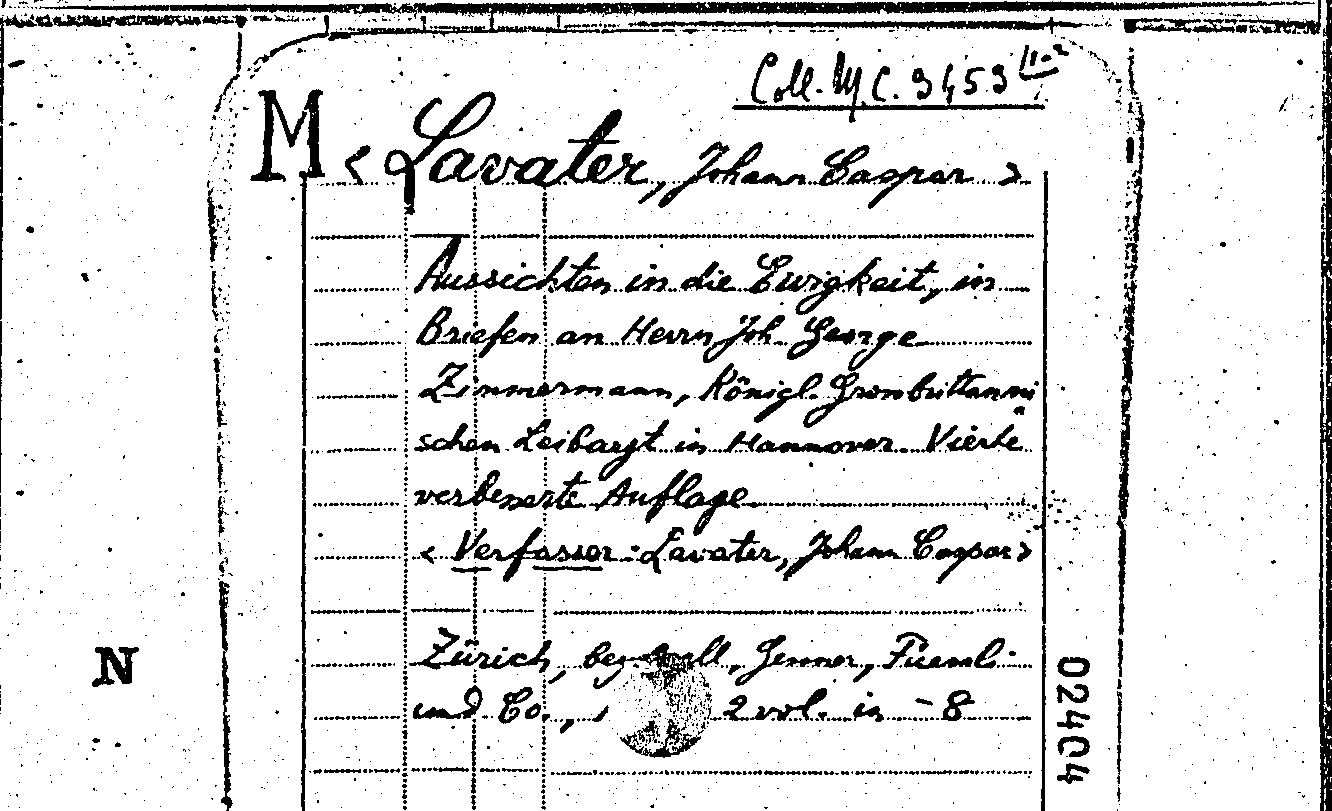 Coll. M.C. 9453 1-2
M < Lavater, Johann Caspar >
Aussichten in die Ewigkeit, in
Briefen an Herrn Joh. George
Zimmermann, Königl. Grossbrittanni
schen Leibarzt in Hannover. Vierte
verbesserte Auflage
< Verfasser: Lavater, Johann Caspar >
Zürich, bey Gessner, Fuessli
N
und Co., 2 vol. in -8
02404